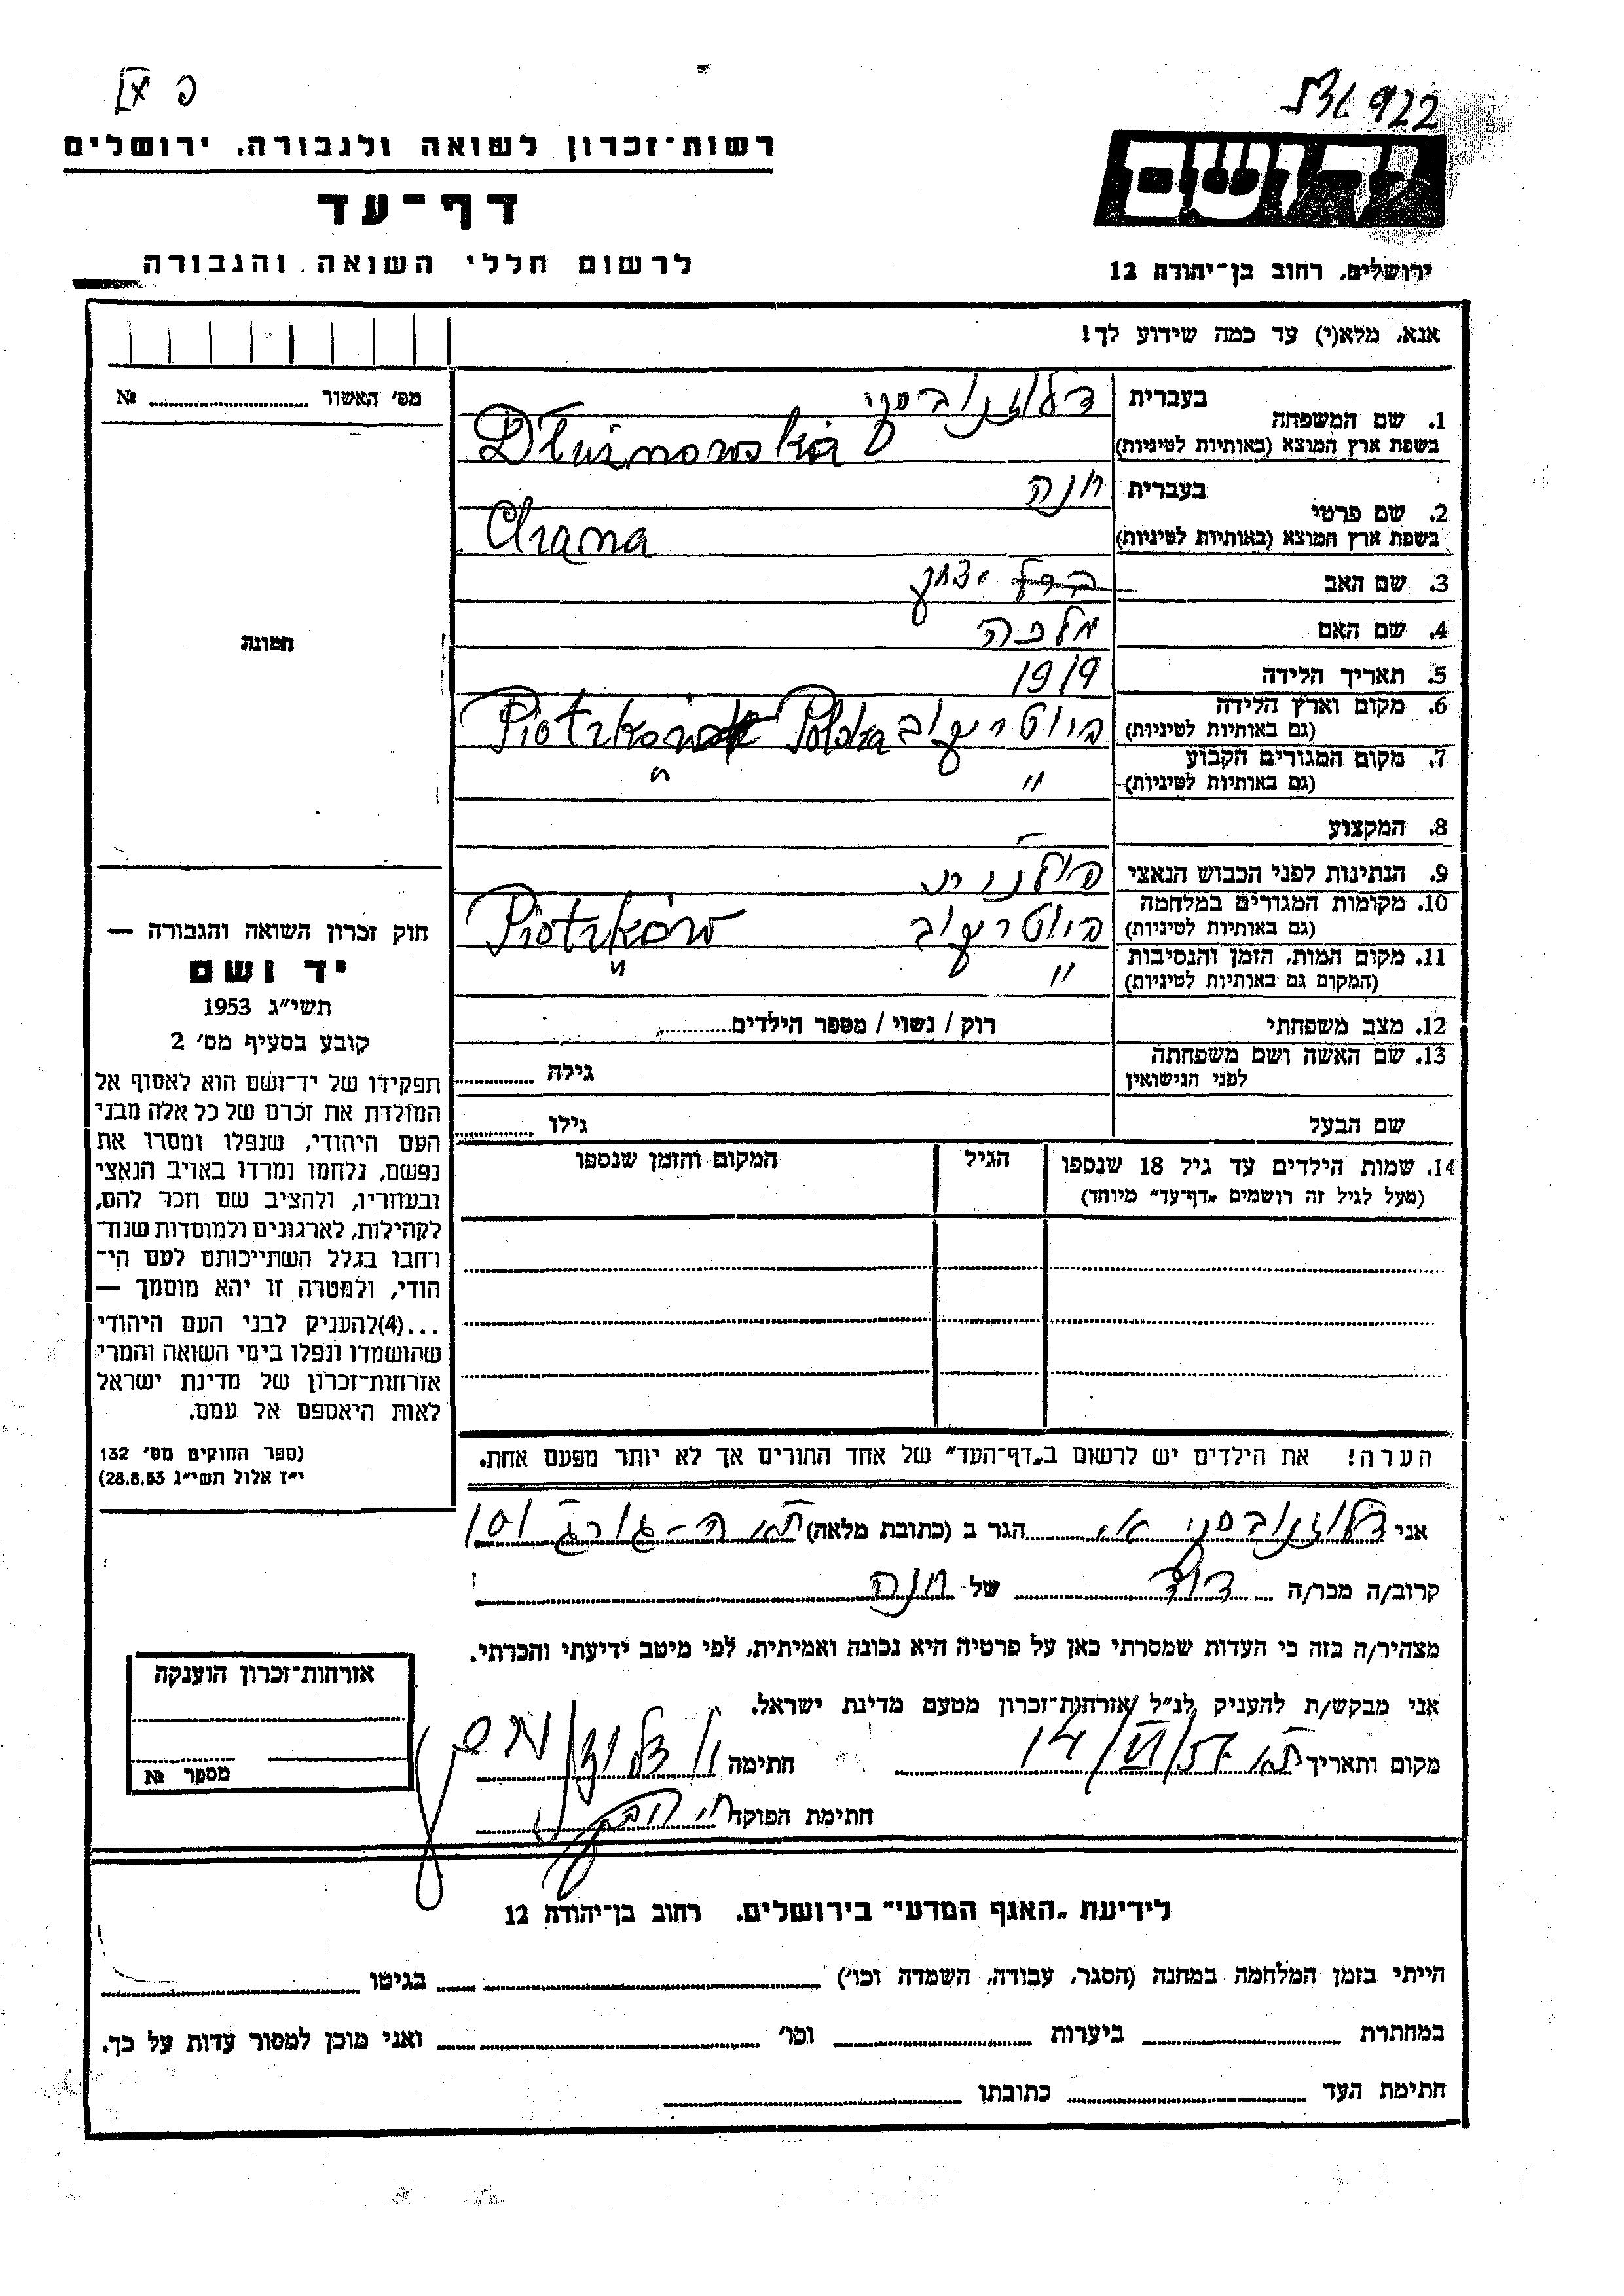 רשות־זכרון לשואה ולגבורה, ירושלים
דף־עד
לרשום חללי השואה והגבורה
922
יד ושם
ירושלים, רחוב בן־יהודה 12
אנא, מלא(י) עד כמה שידוע לך!
מס׳ האשור № 
1. שם המשפחה בעברית דלוזנובסקי
בשפת ארץ המוצא (באותיות לטיניות) Dłużnowska
2. שם פרטי בעברית חנה
בשפת ארץ המוצא (באותיות לטיניות) Chana
3. שם האב יצחק
4. שם האם מלכה
5. תאריך הלידה 1919
6. מקום וארץ הלידה (גם באותיות לטיניות) פיוטרקוב Piotrków Polska
7. מקום המגורים הקבוע (גם באותיות לטיניות) " "
8. המקצוע –
9. הנתינות לפני הכבוש הנאצי פולנית
10. מקומות המגורים במלחמה (גם באותיות לטיניות) פיוטרקוב Piotrków
11. מקום המות, הזמן והנסיבות (המקום גם באותיות לטיניות) " "
12. מצב משפחתי רוק / נשוי / מספר הילדים
13. שם האשה ושם משפחתה לפני הנישואין גילה
שם הבעל גילו
14. שמות הילדים עד גיל 18 שנספו (מעל לגיל זה רושמים „דף־עד” מיוחד)
הגיל
המקום והזמן שנספו
הערה! את הילדים יש לרשום ב„דף־העד” של אחד ההורים אך לא יותר מפעם אחת.
תמונה
חוק זכרון השואה והגבורה —
יד ושם
תשי״ג 1953
קובע בסעיף מס׳ 2
תפקידו של יד־ושם הוא לאסוף אל
המולדת את זכרם של כל אלה מבני
העם היהודי, שנפלו ומסרו את
נפשם, נלחמו ומרדו באויב הנאצי
ובעוזריו, ולהציב שם וזכר להם,
לקהילות, לארגונים ולמוסדות שנח־
רבו בגלל השתייכותם לעם הי־
הודי, ולמטרה זו יהא מוסמך —
...(4) להעניק לבני העם היהודי
שהושמדו ונפלו בימי השואה והמרי
אזרחות־זכרון של מדינת ישראל
לאות היאספם אל עמם.
(ספר החוקים מס׳ 132
י״ז אלול תשי״ג 28.8.53)
אני דלוזנובסקי הגר ב (כתובת מלאה)
קרוב/ה מכר/ה דוד של חנה
מצהיר/ה בזה כי העדות שמסרתי כאן על פרטיה היא נכונה ואמיתית, לפי מיטב ידיעתי והכרתי.
אני מבקש/ת להעניק לנ״ל אזרחות־זכרון מטעם מדינת ישראל.
מקום ותאריך חתימה
חתימת הפוקד
אזרחות־זכרון הוענקה
מספר №
לידיעת „האגף המדעי” בירושלים, רחוב בן־יהודה 12
הייתי בזמן המלחמה במחנה (הסגר, עבודה, השמדה וכו׳) בגיטו
במחתרת ביערות וכו׳ ואני מוכן למסור עדות על כך.
חתימת העד כתובתו